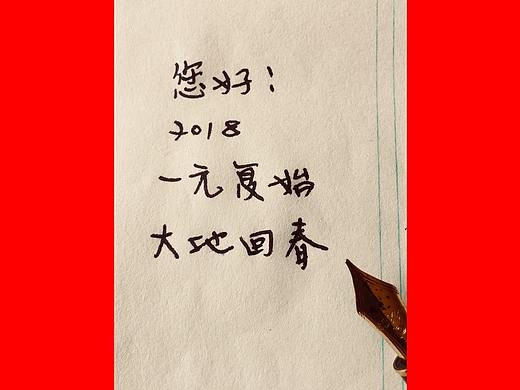 您好！
2018
一元复始
大地回春